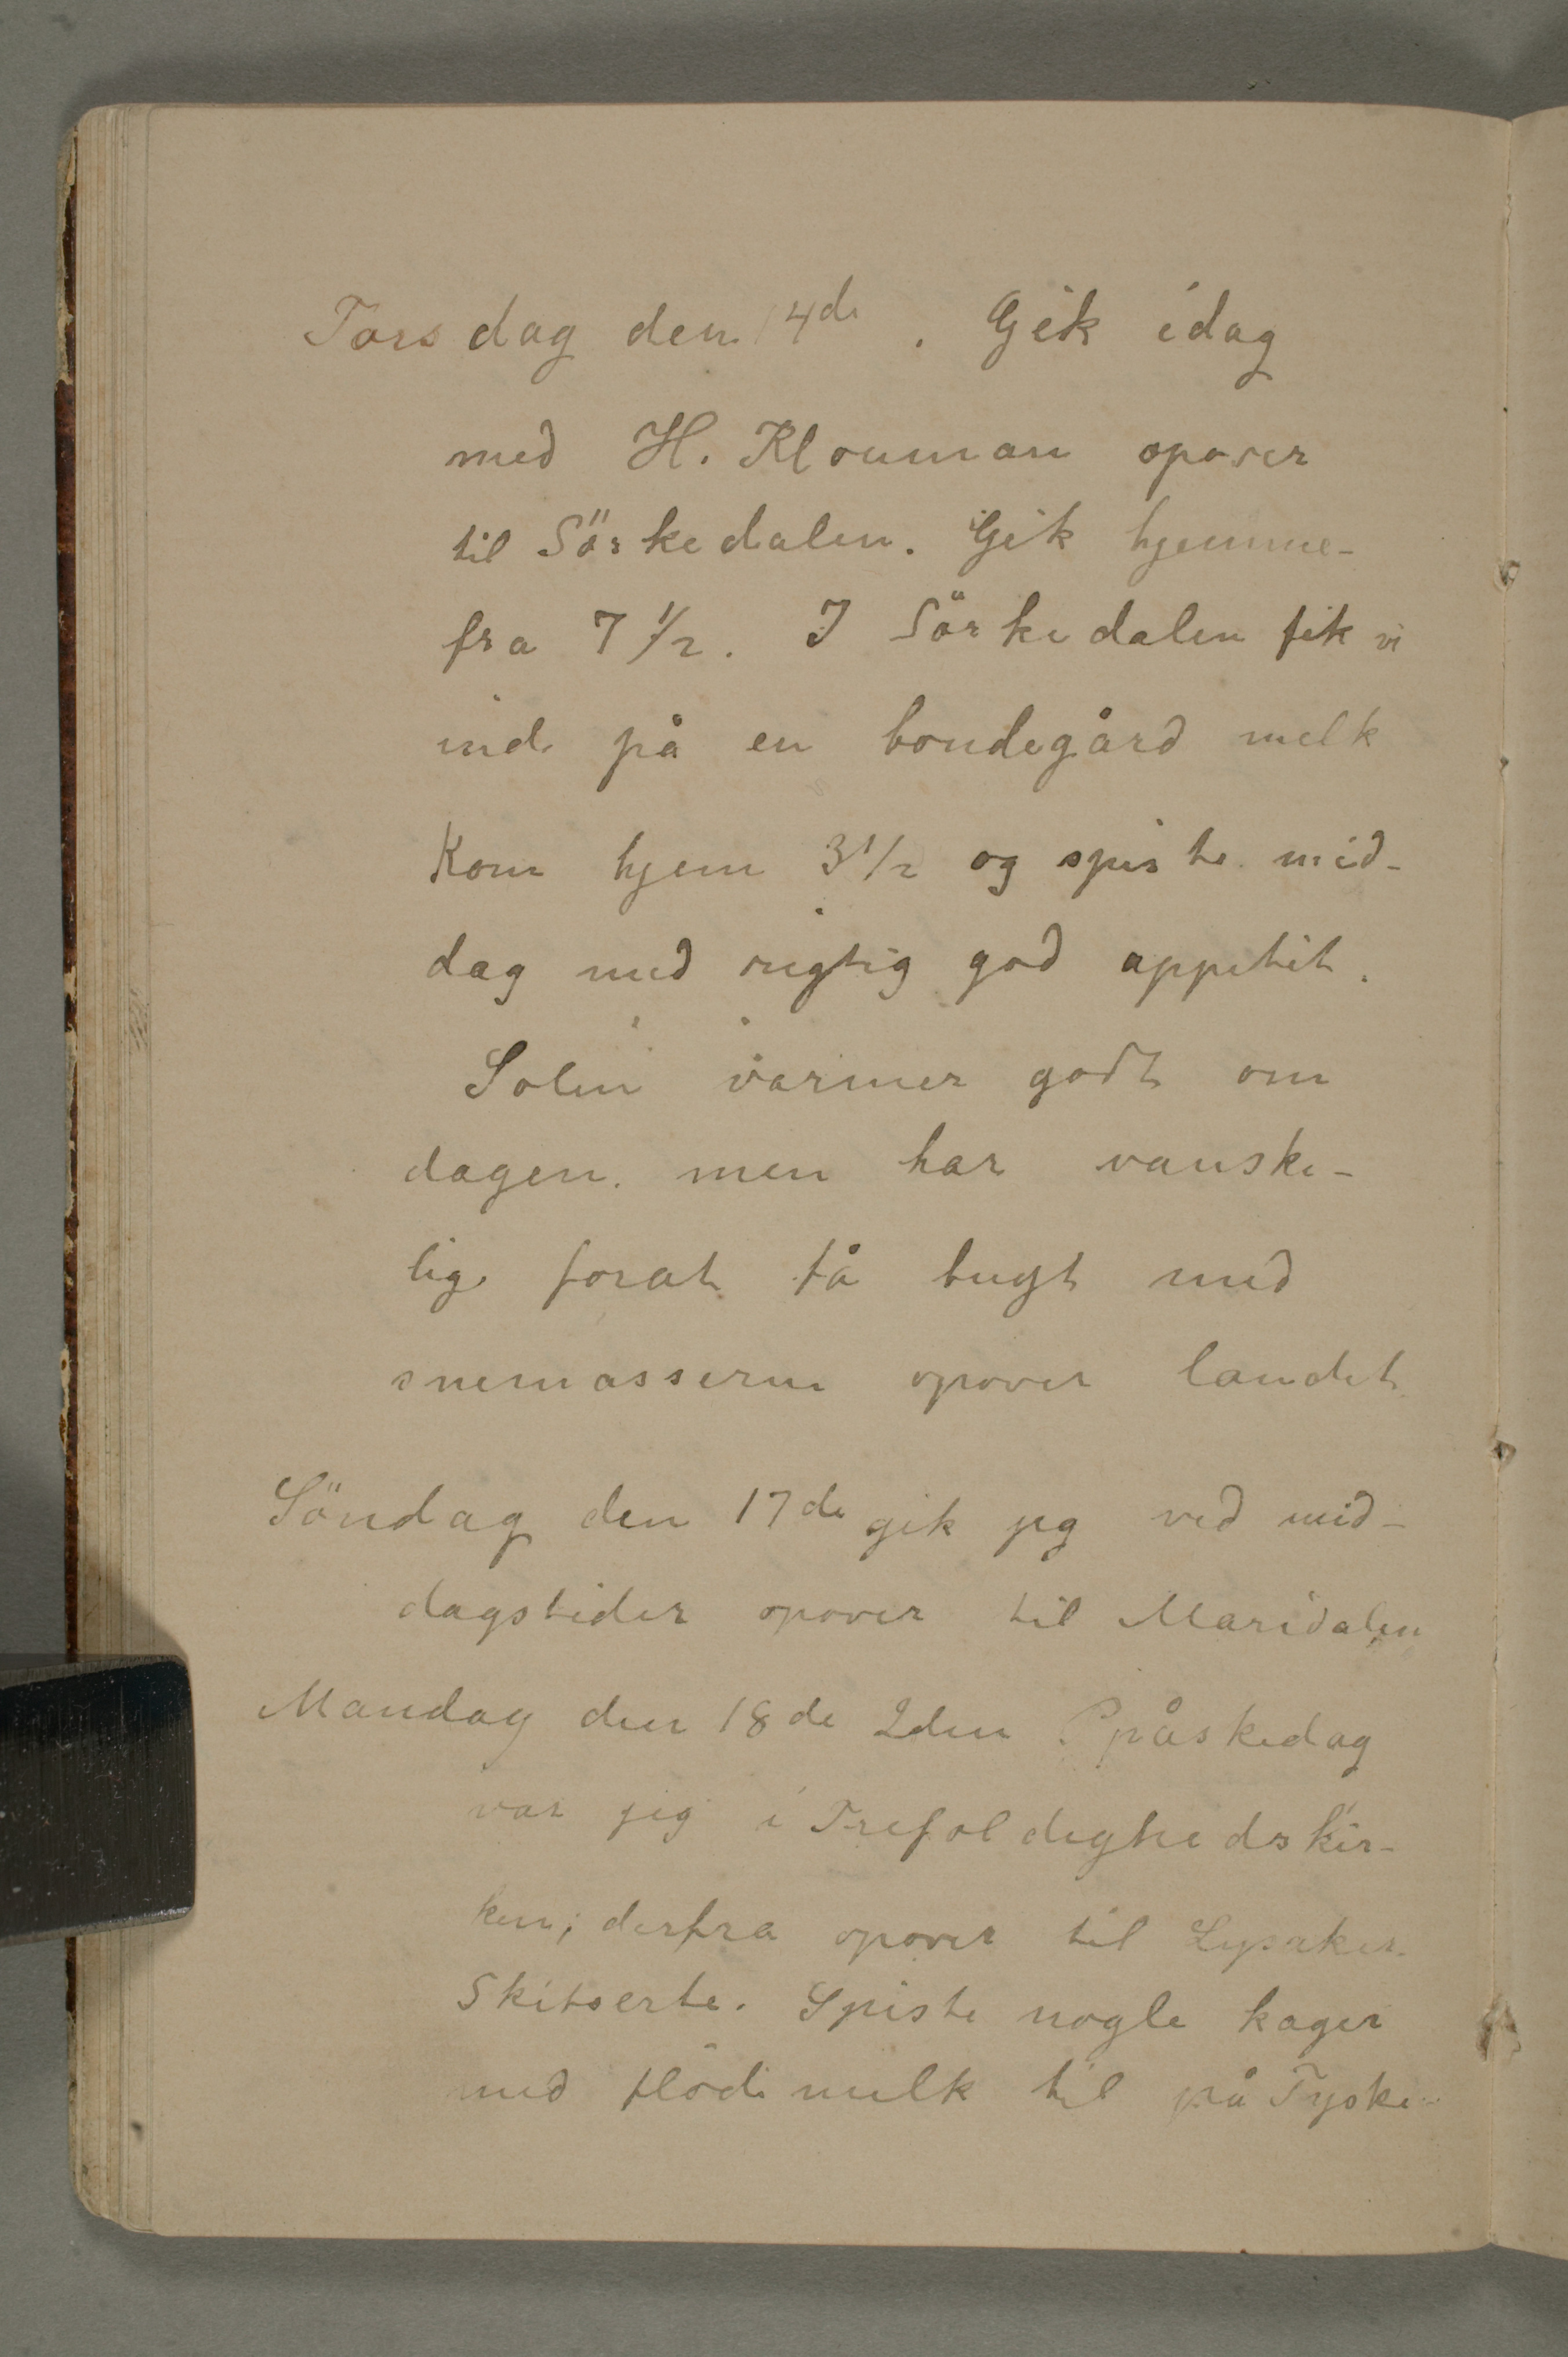 Torsdag den 14de. Gik idag
med H. Klouman opover
til Sörkedalen. Gik hjemme-
fra 7 1/2. I Sörkedalen fik vi
inde på en bondegård melk
Kom hjem 3 1/2 og spiste mid-
dag med rigtig god appetit.
Solen varmer godt om
dagen. men har vanske-
lig forat få bugt med
snemasserne opover landet
Söndag den 17de gik jeg ved mid-
dagstider opover til Maridalen
Mandag den 18de 2den påskedag
var jeg i Trefoldighedskir-
ken; derfra opover til Lysaker.
Skitserte. Spiste nogle kager
med flöde melk til på Tyske-